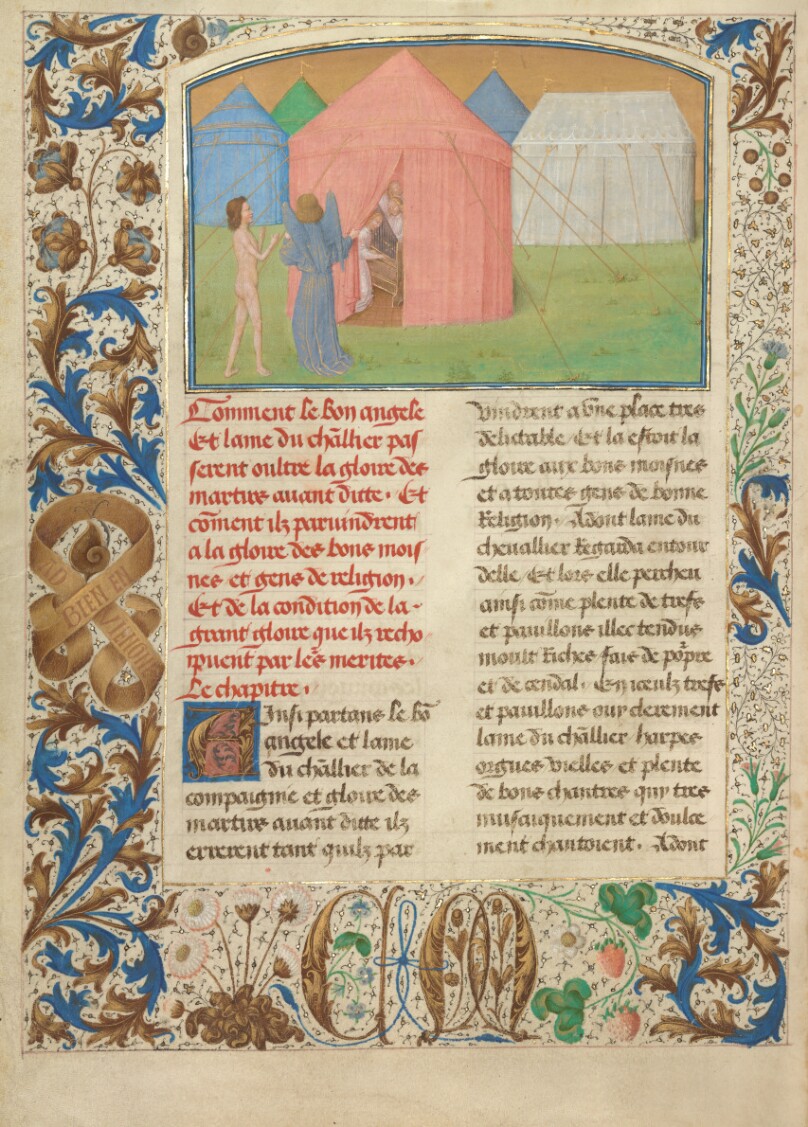 Comment le bon angele
Et lame du chāllier pas
serent oultre la gloire des
martirs auant ditte. Et
cōment ilz paruindrent
a la gloire des bons mois
nes et gens de religion.
Et de la condition de la
grant gloire que ilz recho
ipuent par les merites.
Le chapitre.
Ainsi partans le bō
angele et lame
du chāllier de la
compaignie et gloire des
martirs auant ditte ilz
errerent tant quilz par
vindrent a vne place tres
delictable / Et la estoit la
gloire aux bons moisnes
et a toutes gens de bonne
Religion. Adont lame du
cheuallier Regarda entour
delle / Et lors elle percheu
ainsi cōme plente de trefs
et pauillons illec tendus
moult Riches fais de pōpre
et de cendal. En iceulz trefs
et pauillons ouy clerement
lame du chāllier harpes
orgues vielles et plente
de bons chantres quy tres
musaiquement et doulce
ment chantoient. Adont
BIEN EN
AVIENGNE
C M